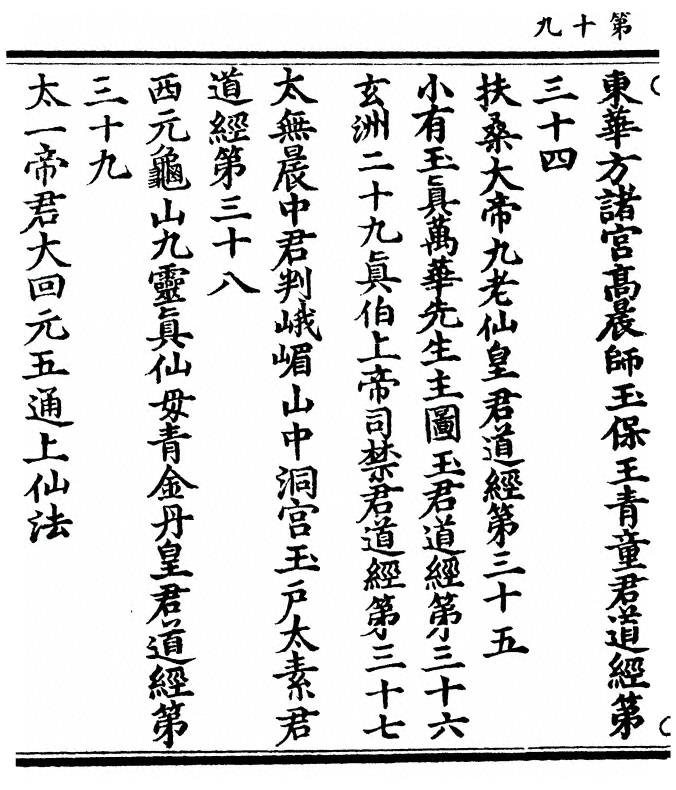 第十九
東華方諸宮高晨師玉保王青童君道經第
三十四
扶桑大帝九老仙皇君道經第三十五
小有玉眞萬華先生主圖玉君道經第三十六
玄洲二十九眞伯上帝司禁君道經第三十七
太無晨中君判峨嵋山中洞宮玉戶太素君
道經第三十八
西元龜山九靈眞仙毋青金丹皇君道經第
三十九
太一帝君大回元五通上仙法